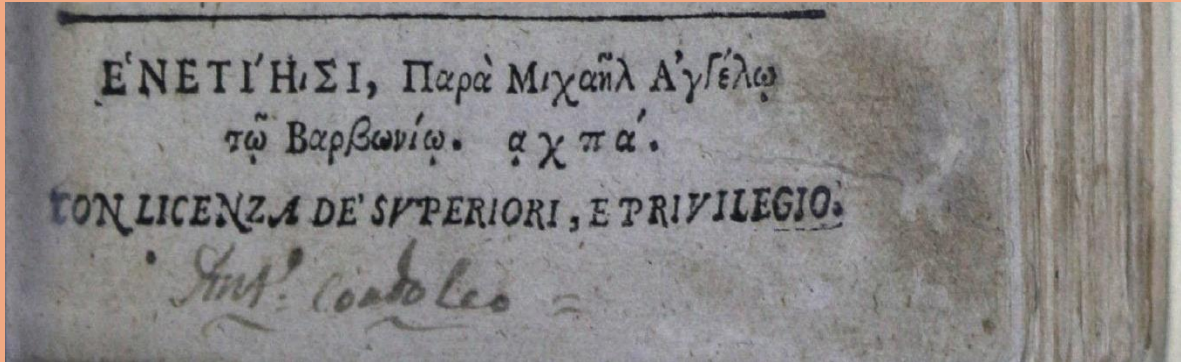 ἘΝΕΤΙΉͅΣΙ, Παρὰ Μιχαῆλ Ἀγγέλῳ
τῷ Βαρβωνίῳ. ͵αχπά.
CON LICENZA DE' SVPERIORI, E PRIVILEGIO.
Ant.